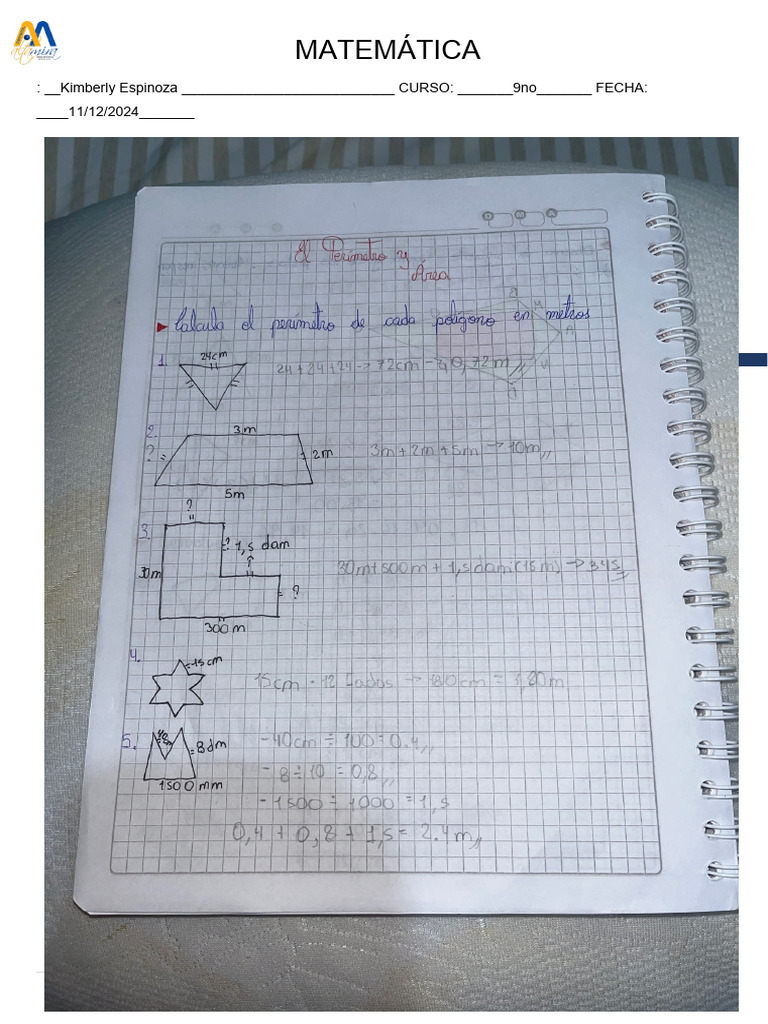 altamira
MATEMÁTICA
: __Kimberly Espinoza ___________________________ CURSO: _______9no_______ FECHA:
____11/12/2024_______
D M A
El Perímetro y
Área
▶ Calcula el perímetro de cada polígono en metros
1. 24cm 24+24+24->72cm->0,72m,,
2. 3m
? 2m 3m+2m+5m->10m,,
5m
?
3. ? 1,5 dam
?
30m ? 30m+500m+1,5dam(15m)->345
300m
4. 15cm 15cm · 12 lados -> 180cm = 1,80m
5. 40cm 8dm - 40cm ÷ 100 = 0.4,,
- 8÷10 = 0,8,,
1500mm - 1500÷1000 = 1,5
0,4 + 0,8 + 1,5 = 2.4m,,